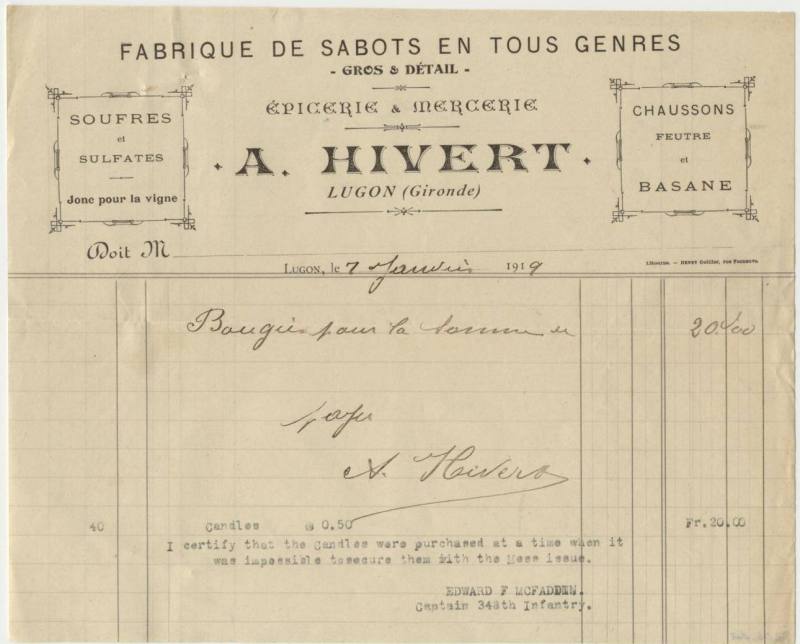 FABRIQUE DE SABOTS EN TOUS GENRES
- GROS & DÉTAIL -
ÉPICERIE & MERCERIE
A. HIVERT
LUGON (Gironde)
SOUFRES
et
SULFATES
Jonc pour la vigne
CHAUSSONS
FEUTRE
et
BASANE
Doit M
LUGON, le 7 Janvier 1919
LIBOURNE. — HENRY
Bougies pour la somme de 20.00
payé
A. Hivert
40 Candles @ 0.50 Fr.20.00
I certify that the Candles were purchased at a time when it
was impossible tosecure them with the Mess issue.
EDWARD F MCFADDIN.
Captain 348th Infantry.